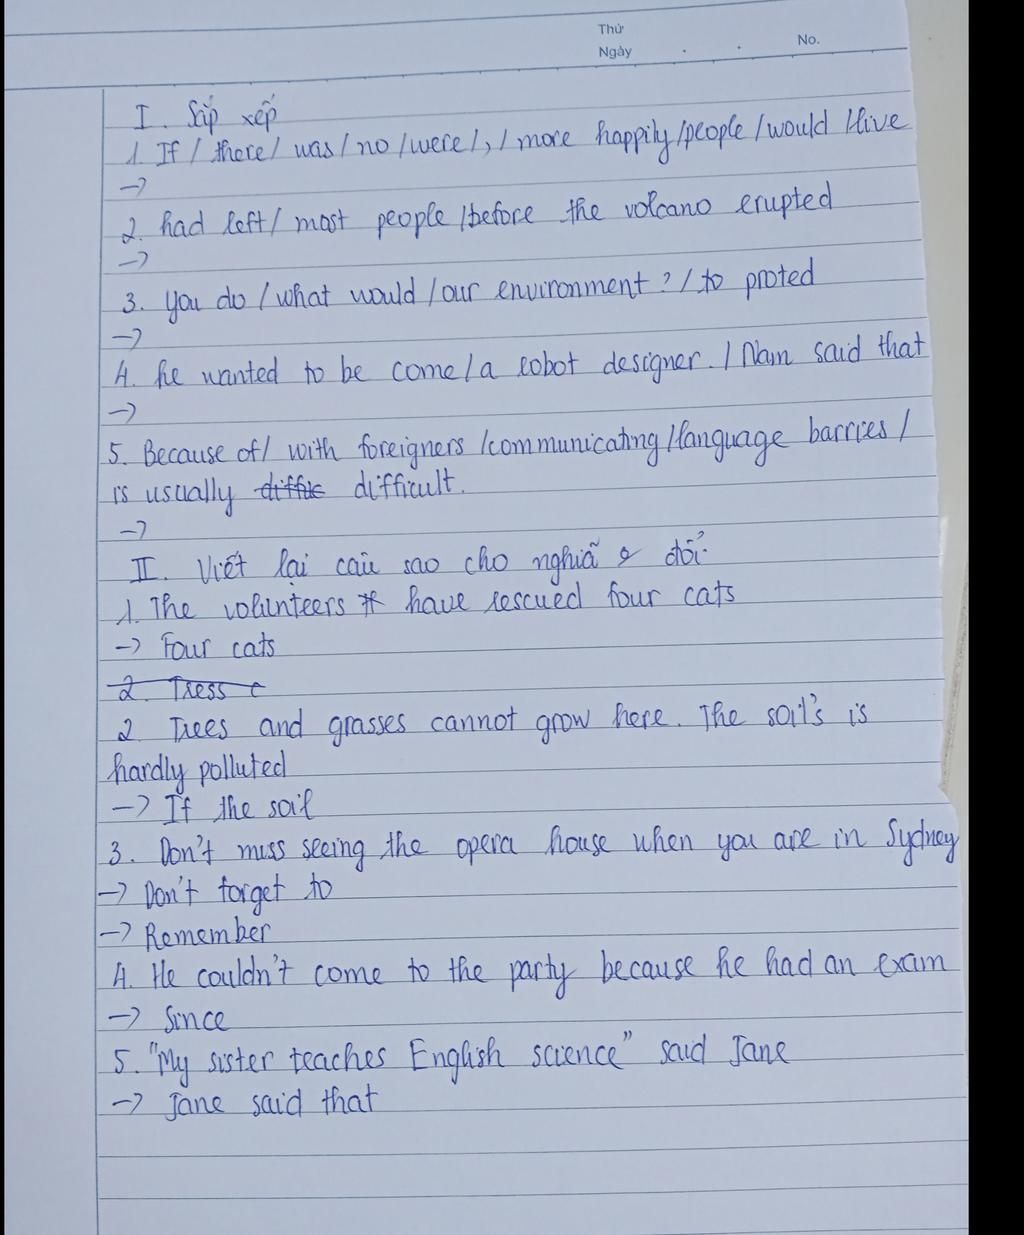 Thứ
Ngày . . No.
I. Sắp xếp
1. If / there / was / no / were / , / more happily / people / would / live
->
2. had left / most people / before the volcano erupted
->
3. you do / what would / our environment ? / to proted
->
4. he wanted to be come / a robot designer. / Nam said that
->
5. Because of / with foreigners / communicating / language barries /
is usually difficult.
->
II. Viết lại câu sao cho nghĩã đổi
1. The volunteers have rescued four cats
-> Four cats
2. Tress
2. Trees and grasses cannot grow here. The soil's is
hardly polluted
-> If the soil
3. Don't miss seeing the opera house when you are in Sydney
-> Don't forget to
-> Remember
4. He couldn't come to the party because he had an exam
-> Since
5. "My sister teaches English science" said Jane
-> Jane said that